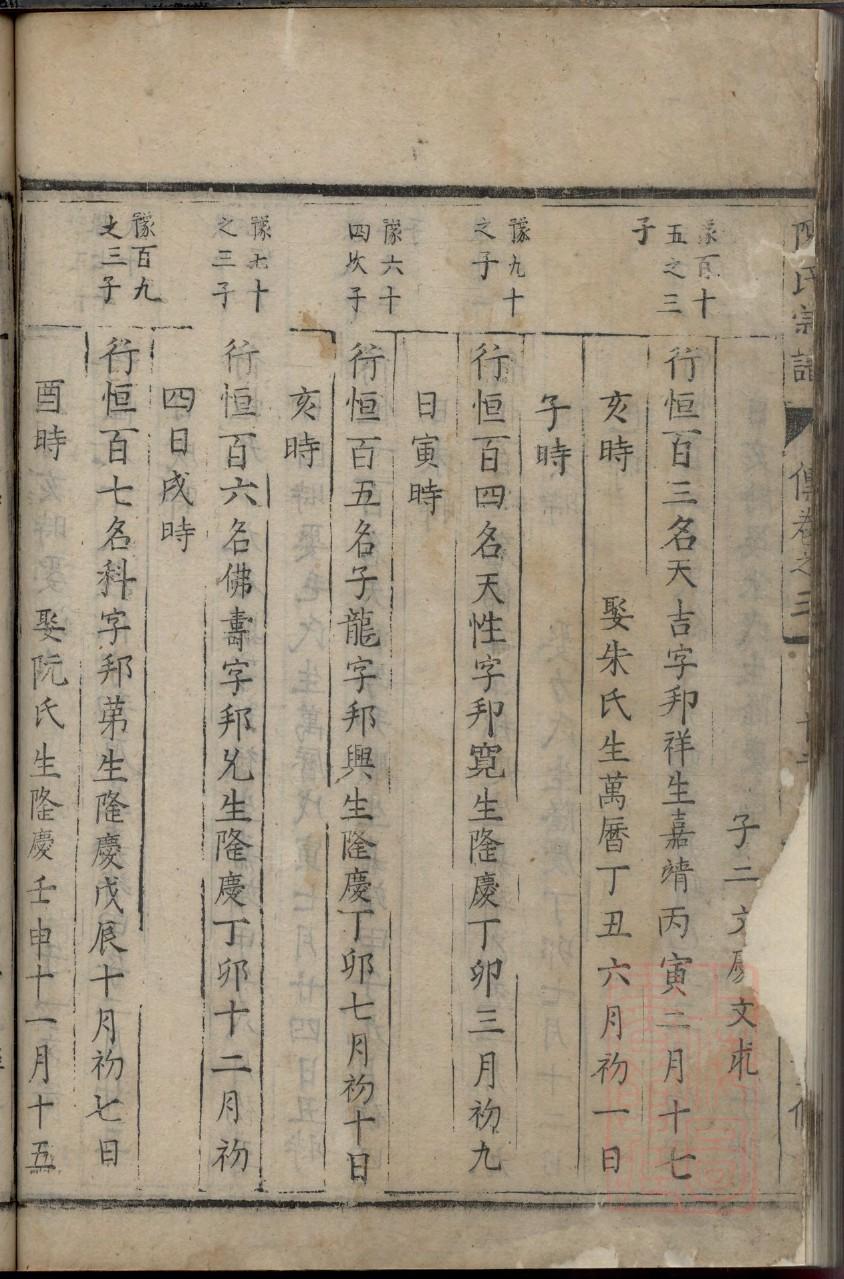 氏宗譜 傳卷之三
子二文 文
豫百十
五之三
子
行恒百三名天吉字邦祥生嘉靖丙寅二月十七
亥時 娶朱氏生萬曆丁丑六月初一日
子時
豫九十
之子
行恒百四名天性字邦寬生隆慶丁卯三月初九
日寅時
豫六十
四次子
行恒百五名子龍字邦興生隆慶丁卯七月初十日
亥時
豫七十
之三子
行恒百六名佛壽字邦兆生隆慶丁卯十二月初
四日戌時
豫百九
之三子
行恒百七名科字邦第生隆慶戊辰十月初七日
酉時 娶阮氏生隆慶壬申十一月十五